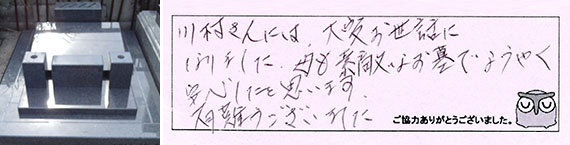 川村さんには、大変お世話に
なりました。母も素敵なお墓でようやく
安心したと思います。
有難うございました
ご協力ありがとうございました。